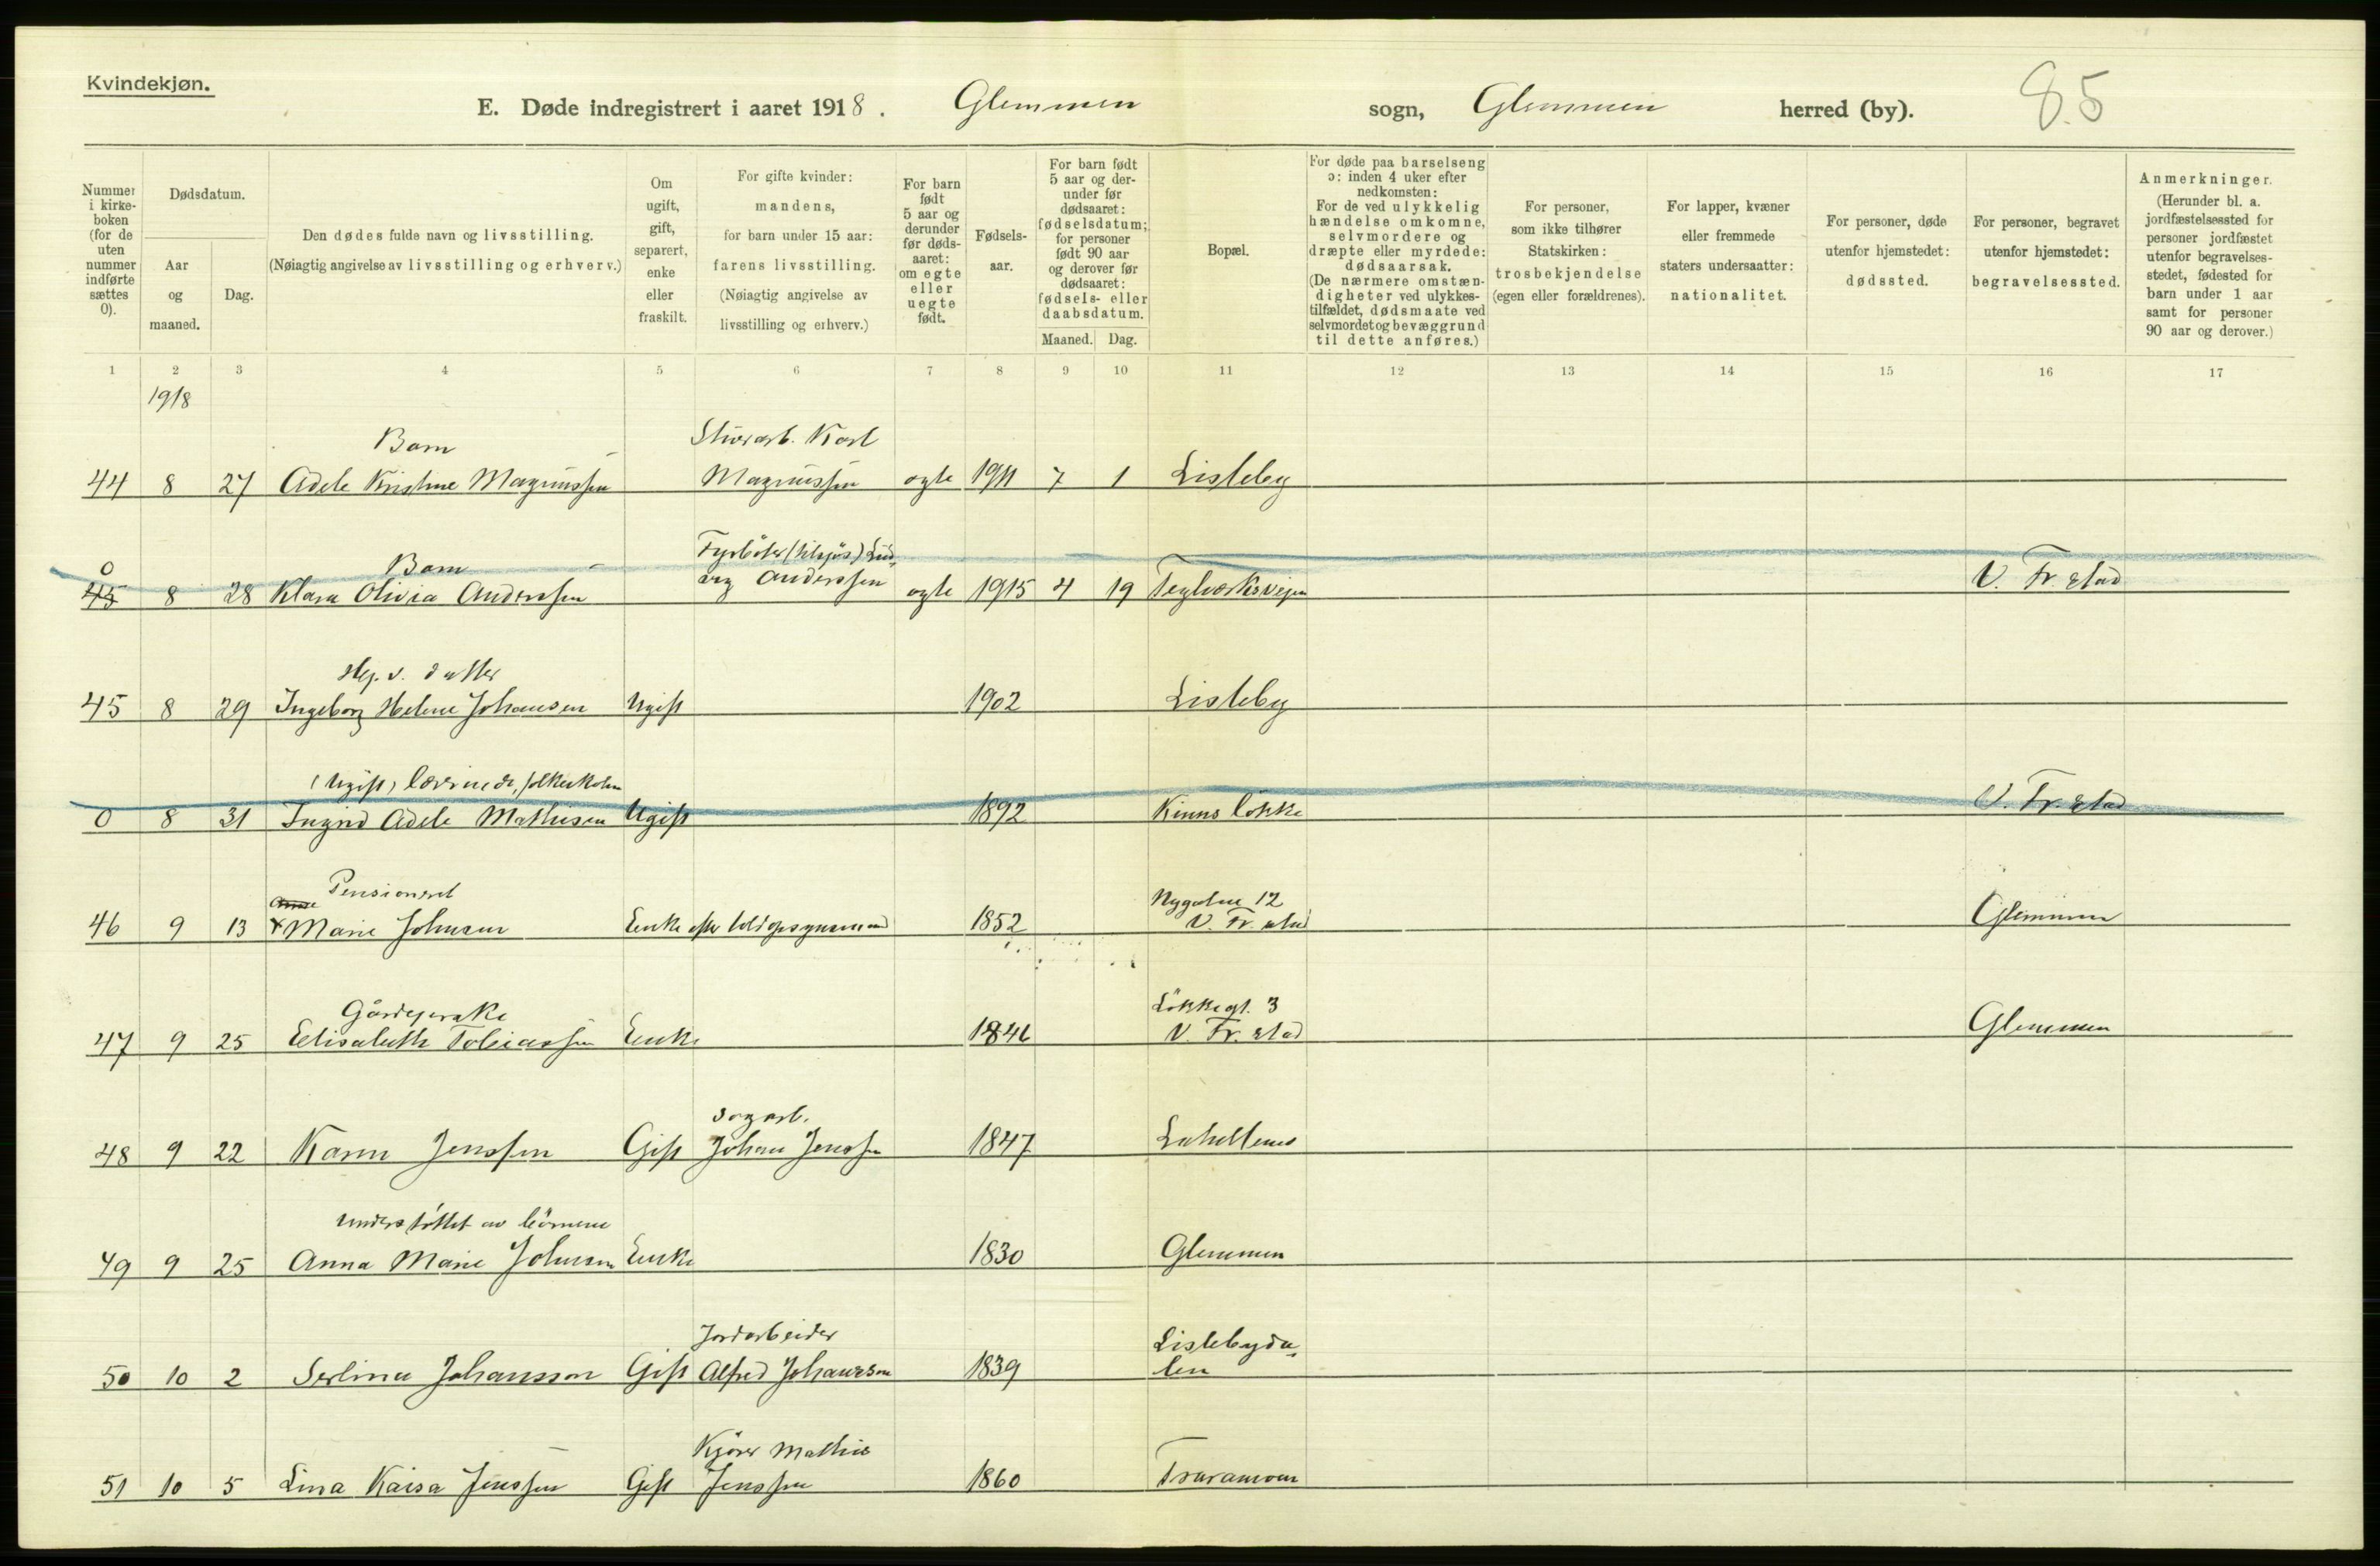 Kvindekjøn.
E. Døde indregistrert i aaret 1918. Glemmen sogn, Glemmen herred (by). 85
Nummer i kirkeboken (for de uten nummer indførte sættes 0).
Dødsdatum.
Aar og maaned.
Dag.
Den dødes fulde navn og livsstilling.
(Nøiagtig angivelse av livsstilling og erhverv.)
Om ugift, gift, separert, enke eller fraskilt.
For gifte kvinder: mandens, for barn under 15 aar: farens livsstilling.
(Nøiagtig angivelse av livsstilling og erhverv.)
For barn født 5 aar og derunder før dødsaaret: om egte eller uegte født.
Fødselsaar.
For barn født 5 aar og derunder før dødsaaret: fødselsdatum; for personer født 90 aar og derover før dødsaaret: fødsels- eller daabsdatum.
Maaned. Dag.
Bopæl.
For døde paa barselseng ɔ: inden 4 uker efter nedkomsten:
For de ved ulykkelig hændelse omkomne, selvmordere og dræpte eller myrdede: dødsaarsak.
(De nærmere omstændigheter ved ulykkestilfældet, dødsmaate ved selvmordet og bevæggrund til dette anføres.)
For personer, som ikke tilhører Statskirken: trosbekjendelse (egen eller forældrenes).
For lapper, kvæner eller fremmede staters undersaatter: nationalitet.
For personer, døde utenfor hjemstedet: dødssted.
For personer, begravet utenfor hjemstedet: begravelsessted.
Anmerkninger.
(Herunder bl. a. jordfæstelsessted for personer jordfæstet utenfor begravelsesstedet, fødested for barn under 1 aar samt for personer 90 aar og derover.)
1 2 3 4 5 6 7 8 9 10 11 12 13 14 15 16 17
1918
Barn Karl
44 8 27 Adele Kristine Magnussen Magnussen egte 1911 7 1 Lisleby
0 Barn Fyrböter (tilsjös) Lud-
45 8 28 Klara Olivia Anderssen vig Anderssen egte 1915 4 19 Teglverksveien V. Fr.stad
Hj. v. datter
45 8 29 Ingeborg Helene Johansen Ugift 1902 Lisleby
(Ugift) lærerinde, folkeskolen
0 8 31 Ingrid Adele Mathisen Ugift 1892 Kinns lökke V. Fr.stad
Pensioneret Nygaten 12
46 9 13 Marie Johnsen Enke efter toldopsynsmand 1852 V. Fr.stad Glemmen
Gårdejerske Lökkegt. 3
47 9 25 Elisabeth Tobiassen Enke 1846 V. Fr.stad Glemmen
Sagarb.
48 9 22 Karen Jenssen Gift Johan Jenssen 1847 Lahellemo
Understöttet av börnene
49 9 25 Anna Marie Johnsen Enke 1830 Glemmen
Jordarbeider Lislebyda-
50 10 2 Serlina Johansson Gift Alfred Johansson 1839 len
Kjörer Mathis
51 10 5 Lina Kaisa Jenssen Gift Jenssen 1860 Traramoen